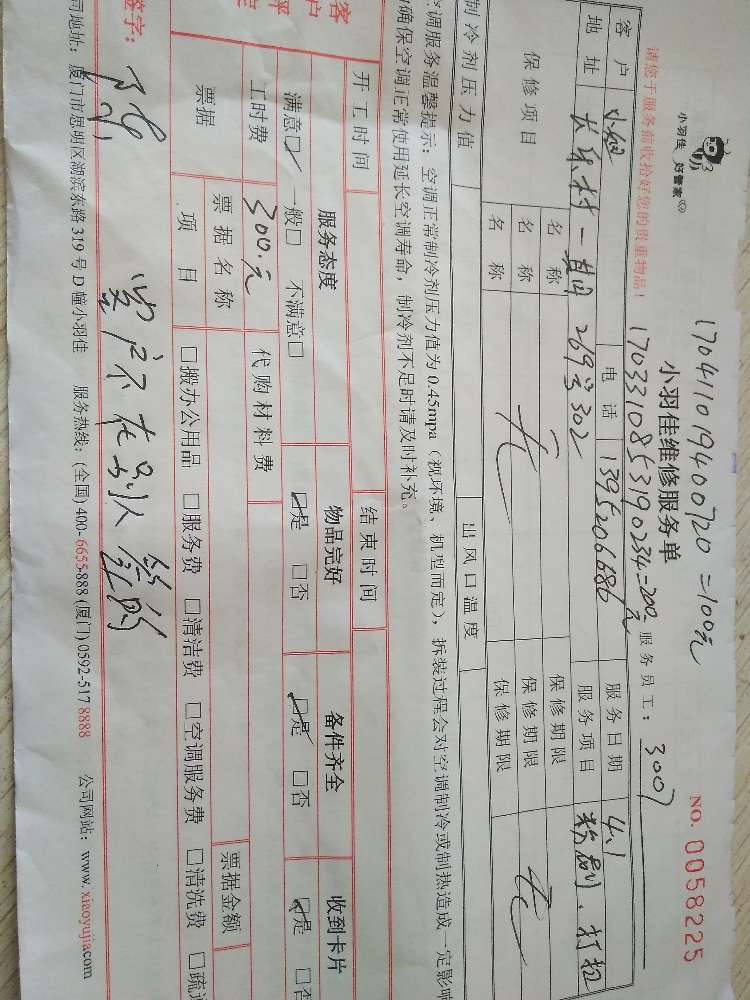 17041101940072０=100元
小羽佳 好管家
小羽佳维修服务单
NO. 0058225
1703310853190234=200元
请您于服务前收拾好您的贵重物品！
服务员工：3007
客户 小倪 电话 1395206686 服务日期 4.1
地址 长乐村一期269号302 服务项目 粉刷、打扫
保修项目 名称 无 保修期限 无
名称 保修期限
名称 保修期限
制冷剂压力值 出风口温度
空调服务温馨提示：空调正常制冷剂压力值为0.45mpa（视环境、机型而定），拆装过程会对空调制冷或制热造成一定影响
确保空调正常使用延长空调寿命，制冷剂不足时请及时补充。
开工时间 结束时间
客户评 服务态度 物品完好 备件齐全 收到卡片
满意☑ 一般□ 不满意□ ☑是 □否 ☑是 □否 ☑是 □否
工时费 300.元 代购材料费
票据 票据名称 票据金额
项目 □搬办公用品 □服务费 □清洁费 □空调服务费 □清洗费 □疏
签字： 陈 客户不在别人签的
司地址：厦门市思明区湖滨东路319号D幢小羽佳 服务热线：(全国)400-6655-888 (厦门)0592-517 8888 公司网站：www.xiaoyujia.com